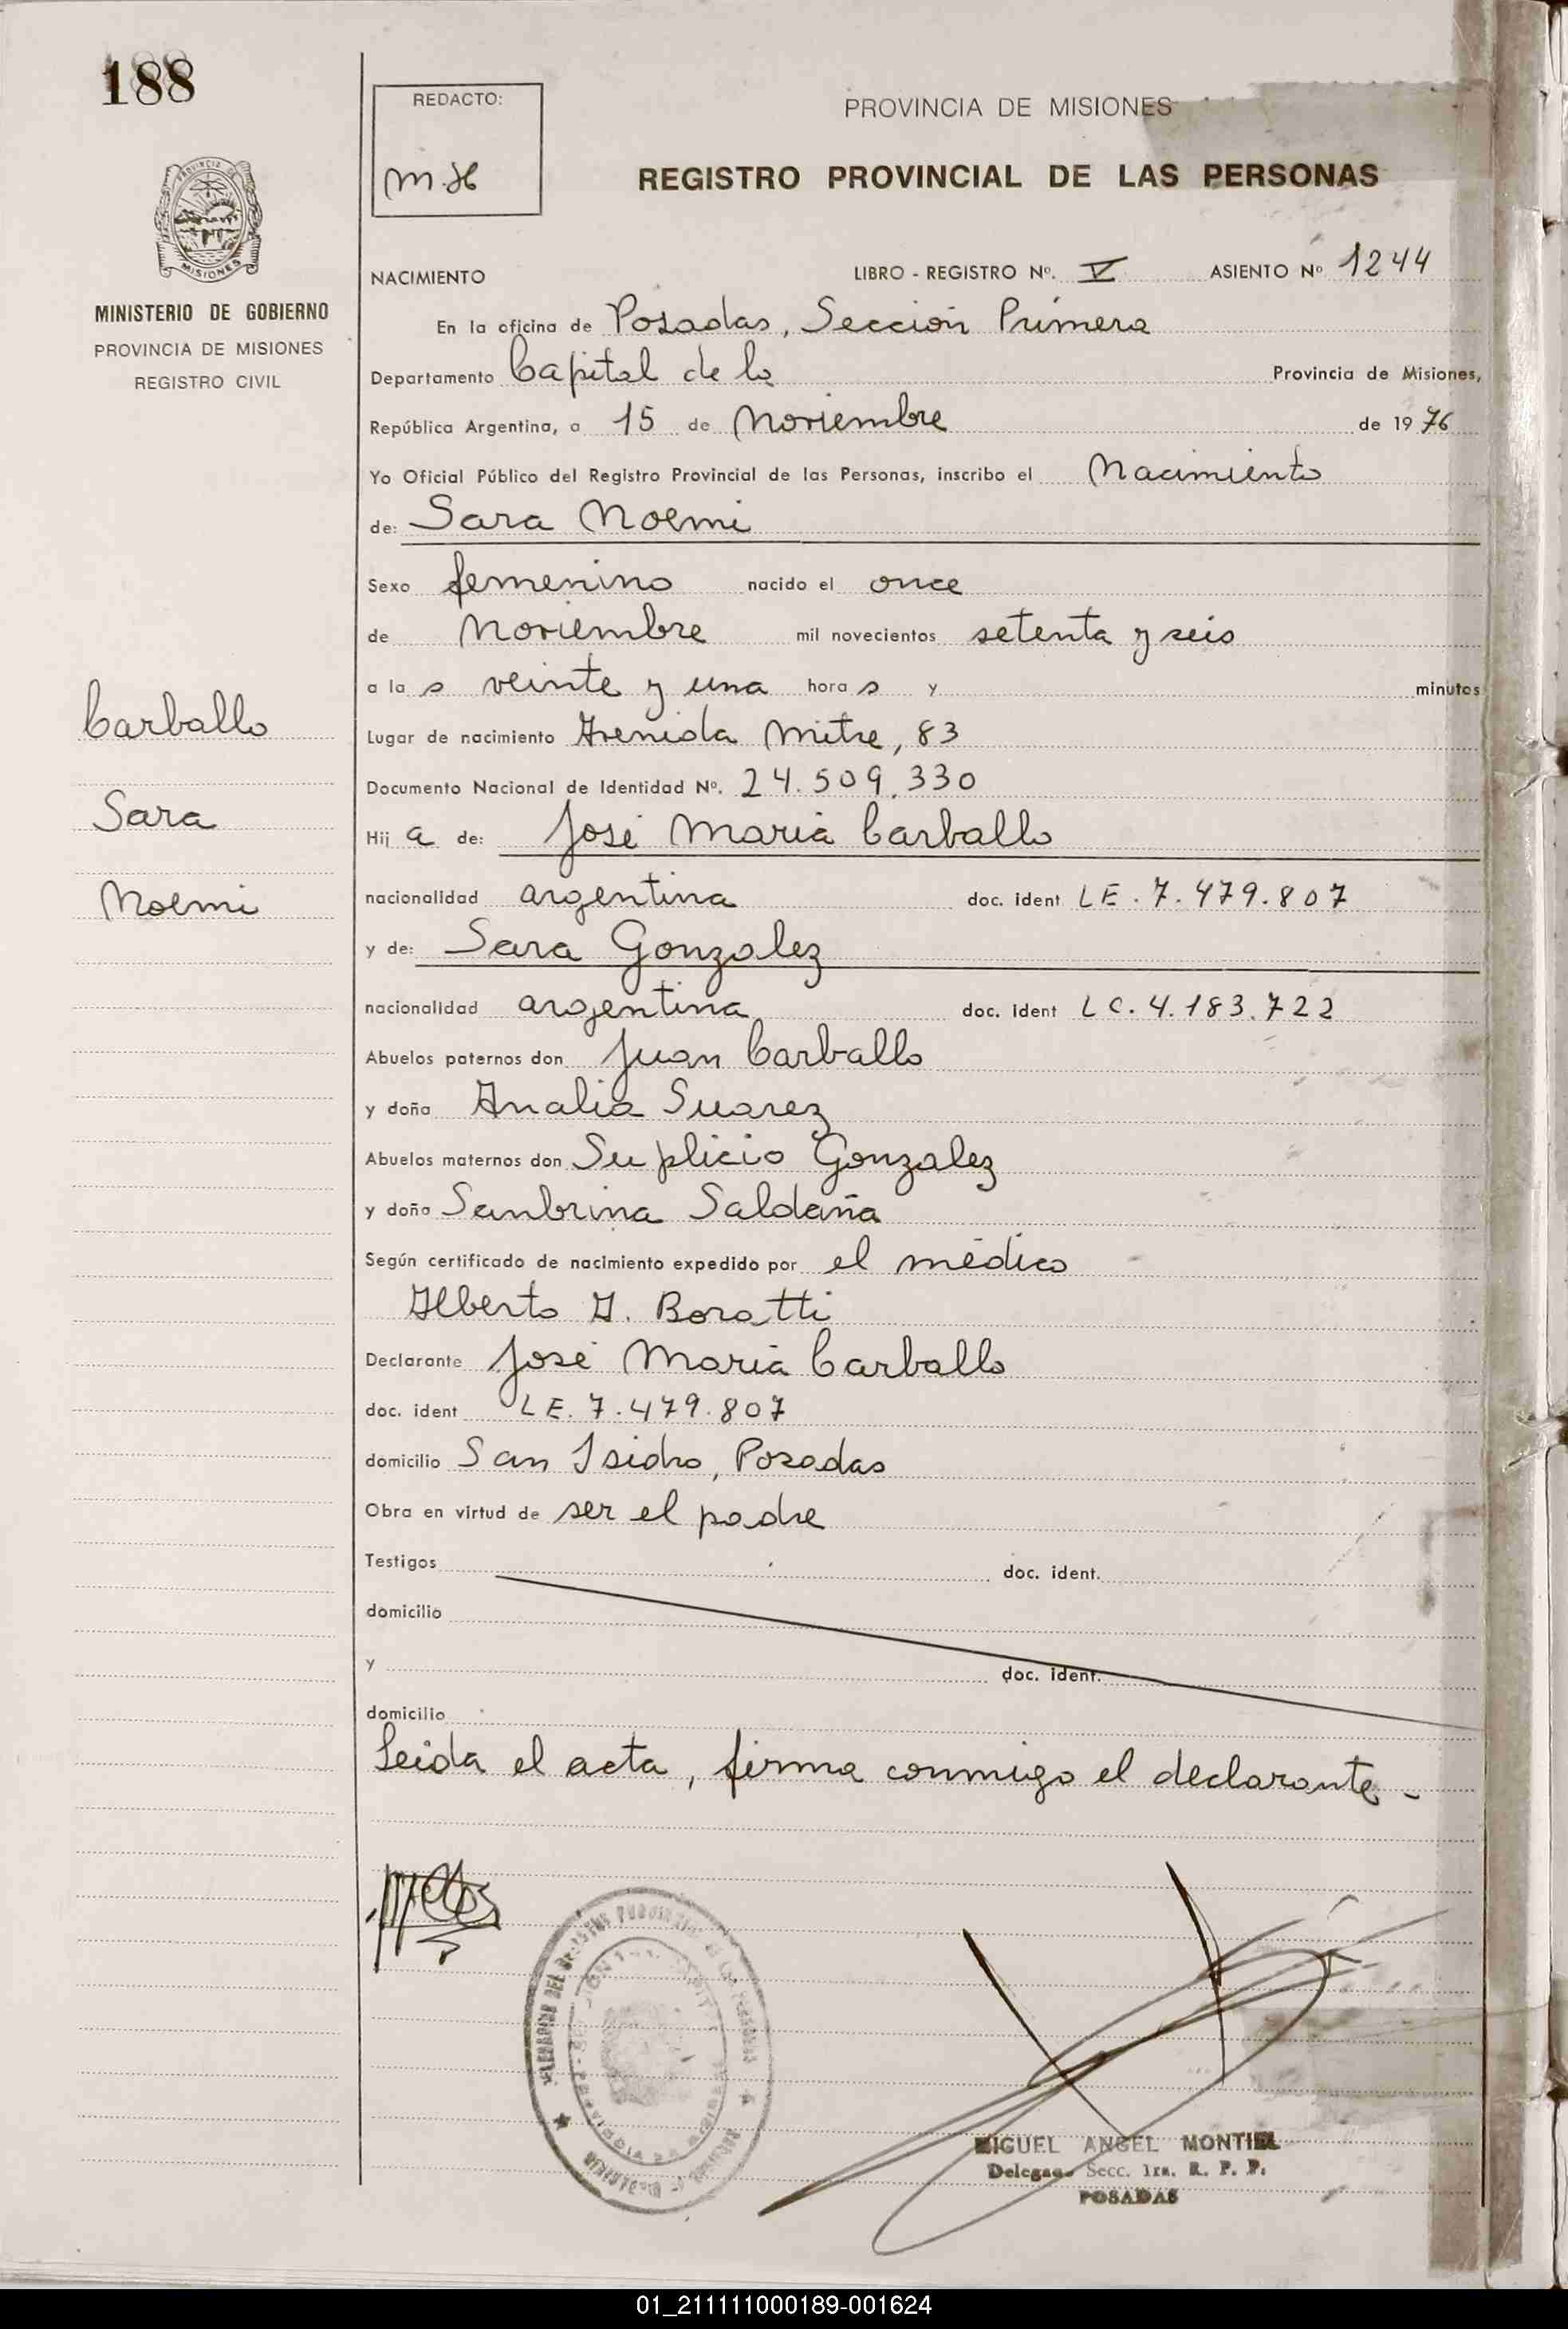 188
REDACTO:
M.H
PROVINCIA DE MISIONES
REGISTRO PROVINCIAL DE LAS PERSONAS
MISIONES
MINISTERIO DE GOBIERNO
PROVINCIA DE MISIONES
REGISTRO CIVIL
NACIMIENTO LIBRO - REGISTRO Nº. V ASIENTO Nº 1244
En la oficina de Posadas, Sección Primera
Departamento Capital de la Provincia de Misiones,
República Argentina, a 15 de Noviembre de 1976
Yo Oficial Público del Registro Provincial de las Personas, inscribo el Nacimiento
de: Sara Noemi
Sexo femenino nacido el once
de Noviembre mil novecientos setenta y seis
a las veinte y una horas y minutos
Carballo
Lugar de nacimiento Avenida Mitre, 83
Documento Nacional de Identidad Nº. 24.509.330
Sara
Hija de: José Maria Carballo
Noemi
nacionalidad argentina doc. ident LE. 7.479.807
y de: Sara Gonzalez
nacionalidad argentina doc. ident LC. 4.183.722
Abuelos paternos don Juan Carballo
y doña Analia Suarez
Abuelos maternos don Suplicio Gonzalez
y doña Sanbrina Saldaña
Según certificado de nacimiento expedido por el médico
Alberto A. Boratti
Declarante José Maria Carballo
doc. ident LE. 7.479.807
domicilio San Isidro, Posadas
Obra en virtud de ser el padre
Testigos doc. ident.
domicilio
y doc. ident.
domicilio
Leida el acta, firma conmigo el declarante.-
MIGUEL ANGEL MONTIEL
Delegado Secc. 1ra. R. P. P.
POSADAS
01_211111000189-001624